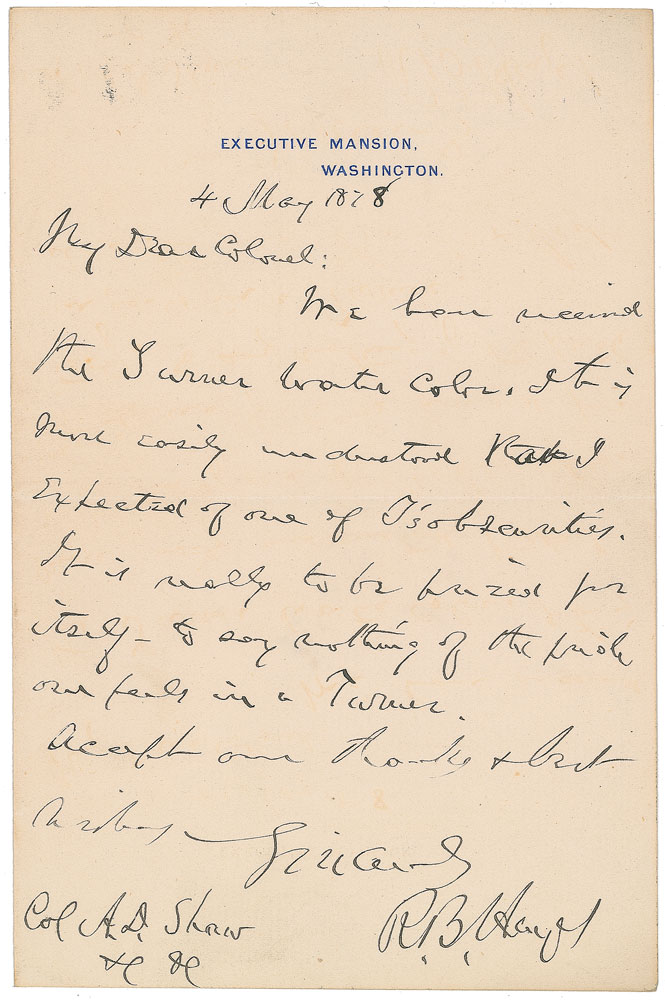 EXECUTIVE MANSION,
WASHINGTON.
4 May 1878
My Dear Colonel:
We have received
the Turner water color. It is
more easily understood than I
expected of one of T's obscurities.
It is really to be prized for
itself - to say nothing of the pride
one feels in a Turner.
Accept our thanks & best
wishes
Sincerely
R. B. Hayes
Col A. D. Shaw
&c &c